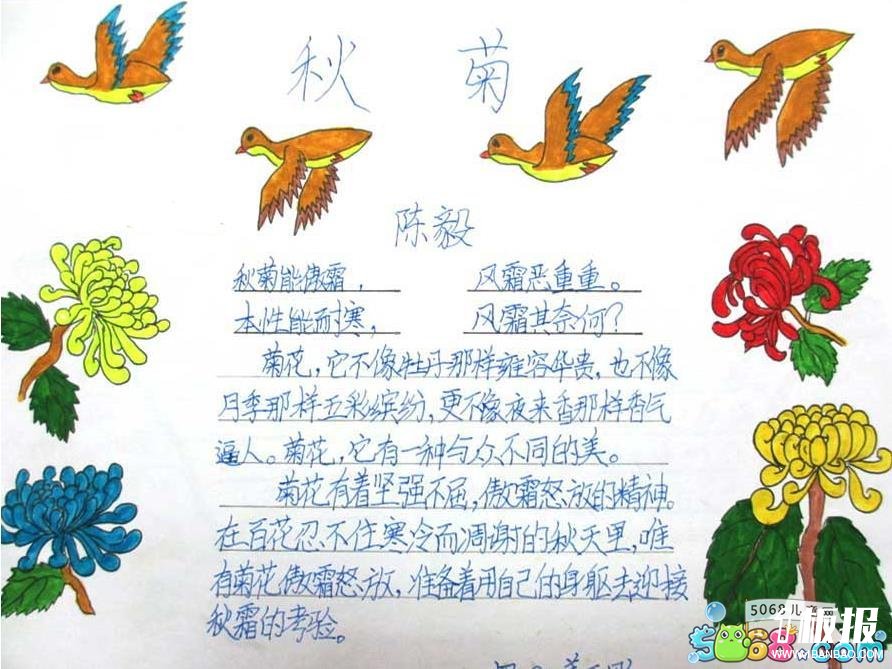 秋 菊
陈毅
秋菊能傲霜， 风霜恶重重。
本性能耐寒， 风霜其奈何？
菊花，它不像牡丹那样雍容华贵，也不像
月季那样五彩缤纷，更不像夜来香那样香气
逼人。菊花，它有一种与众不同的美。
菊花有着坚强不屈，傲霜怒放的精神。
在百花忍不住寒冷而凋谢的秋天里，唯
有菊花傲霜怒放，准备着用自己的身躯去迎接
秋霜的考验。
5068儿 网
板报
5068.com
WWW.BANBAO.COM